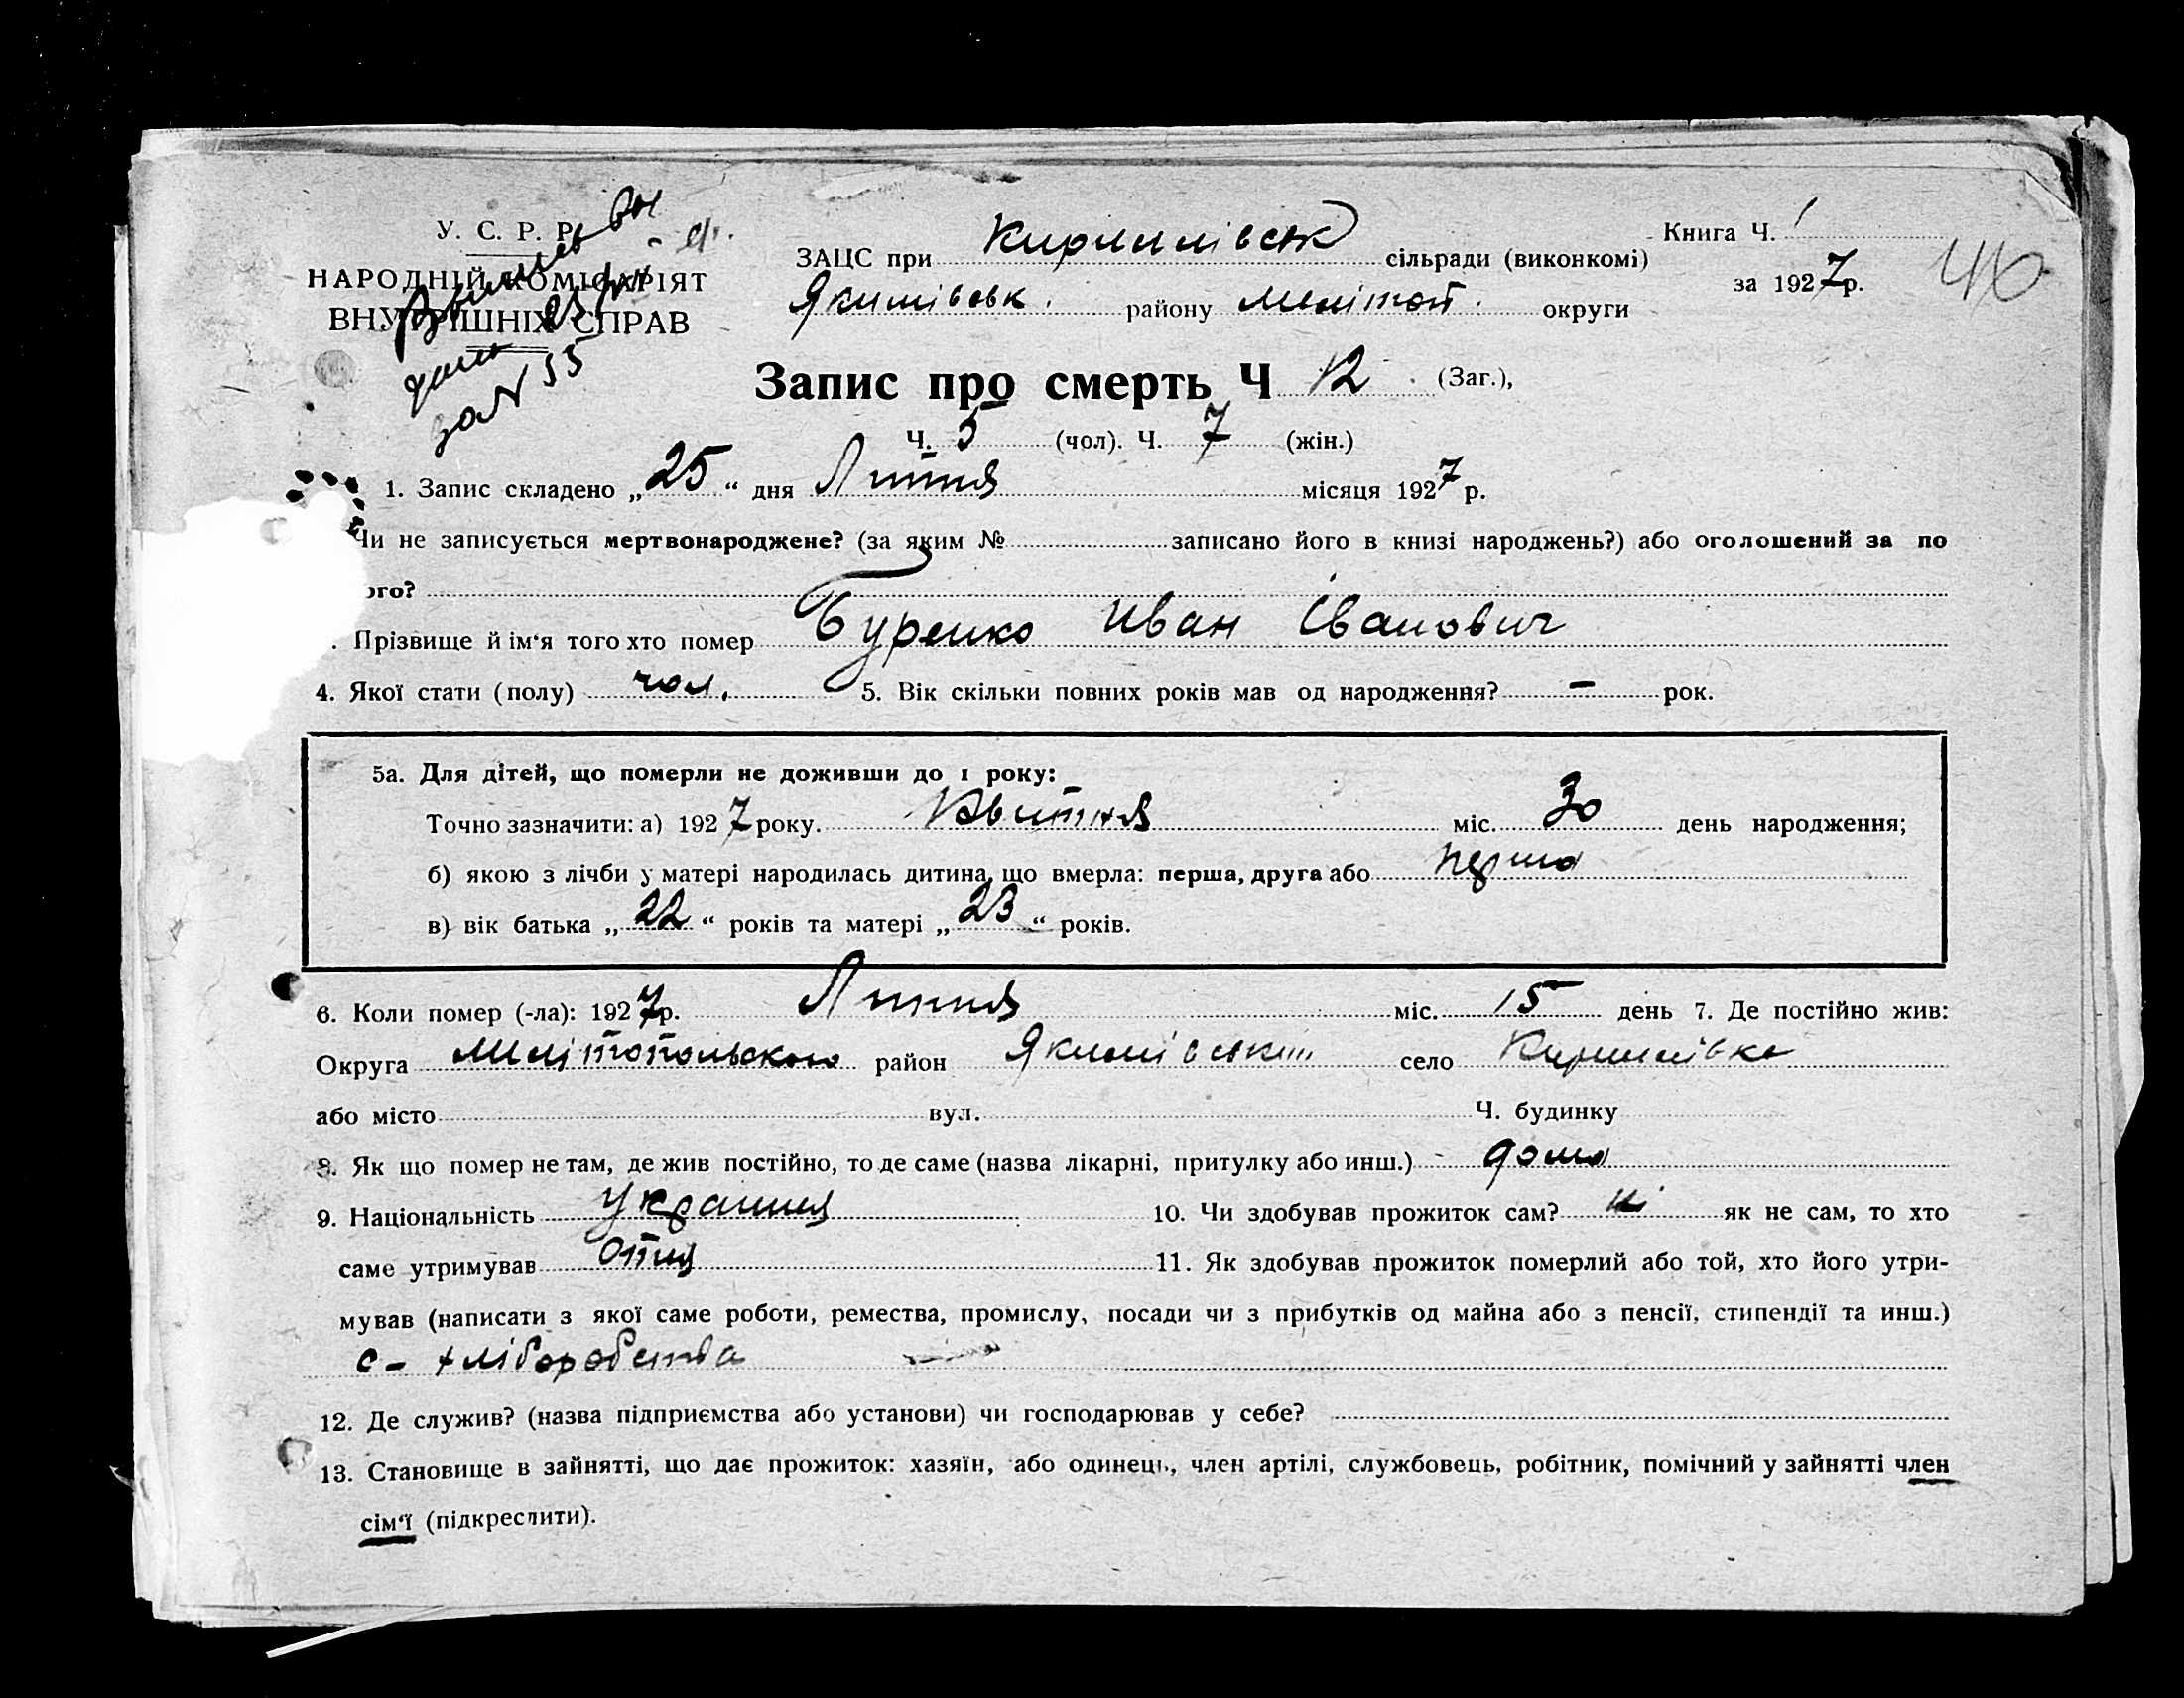 У. С. Р. Р.
НАРОДНІЙ КОМІСАРІЯТ
ВНУТРІШНІХ СПРАВ
за № 55
ЗАЦС при Кирилівськ сільради (виконкомі)
Якимівськ. району Мелітоп. округи
Книга Ч. 1
за 1927 р.
46
Запис про смерть Ч 12 (Заг.),
Ч. 5 (чол). Ч. 7 (жін.)
1. Запис складено „25“ дня Липня місяця 1927 р.
Чи не записується мертвонароджене? (за яким № записано його в книзі народжень?) або оголошений за по
ого?
. Прізвище й ім‘я того хто помер Буренко Иван Іванович
4. Якої стати (полу) чол. 5. Вік скільки повних років мав од народження? – рок.
5а. Для дітей, що померли не доживши до 1 року:
Точно зазначити: а) 1927 року. Квитня міс. 30 день народження;
б) якою з лічби у матері народилась дитина, що вмерла: перша, друга або перша
в) вік батька „22“ років та матері „23“ років.
6. Коли помер (-ла): 1927 р. Липня міс. 15 день 7. Де постійно жив:
Округа Мелітопольского район Якимівськ село Кирилівка
або місто вул. Ч. будинку
8. Як що помер не там, де жив постійно, то де саме (назва лікарні, притулку або инш.) дома
9. Національність Украинец 10. Чи здобував прожиток сам? ні як не сам, то хто
саме утримував Отец 11. Як здобував прожиток померлий або той, хто його утри-
мував (написати з якої саме роботи, ремества, промислу, посади чи з прибутків од майна або з пенсії, стипендії та инш.)
с – хліборобства
12. Де служив? (назва підприємства або установи) чи господарював у себе?
13. Становище в зайнятті, що дає прожиток: хазяїн, або одинець, член артілі, службовець, робітник, помічний у зайнятті член
сім‘ї (підкреслити).